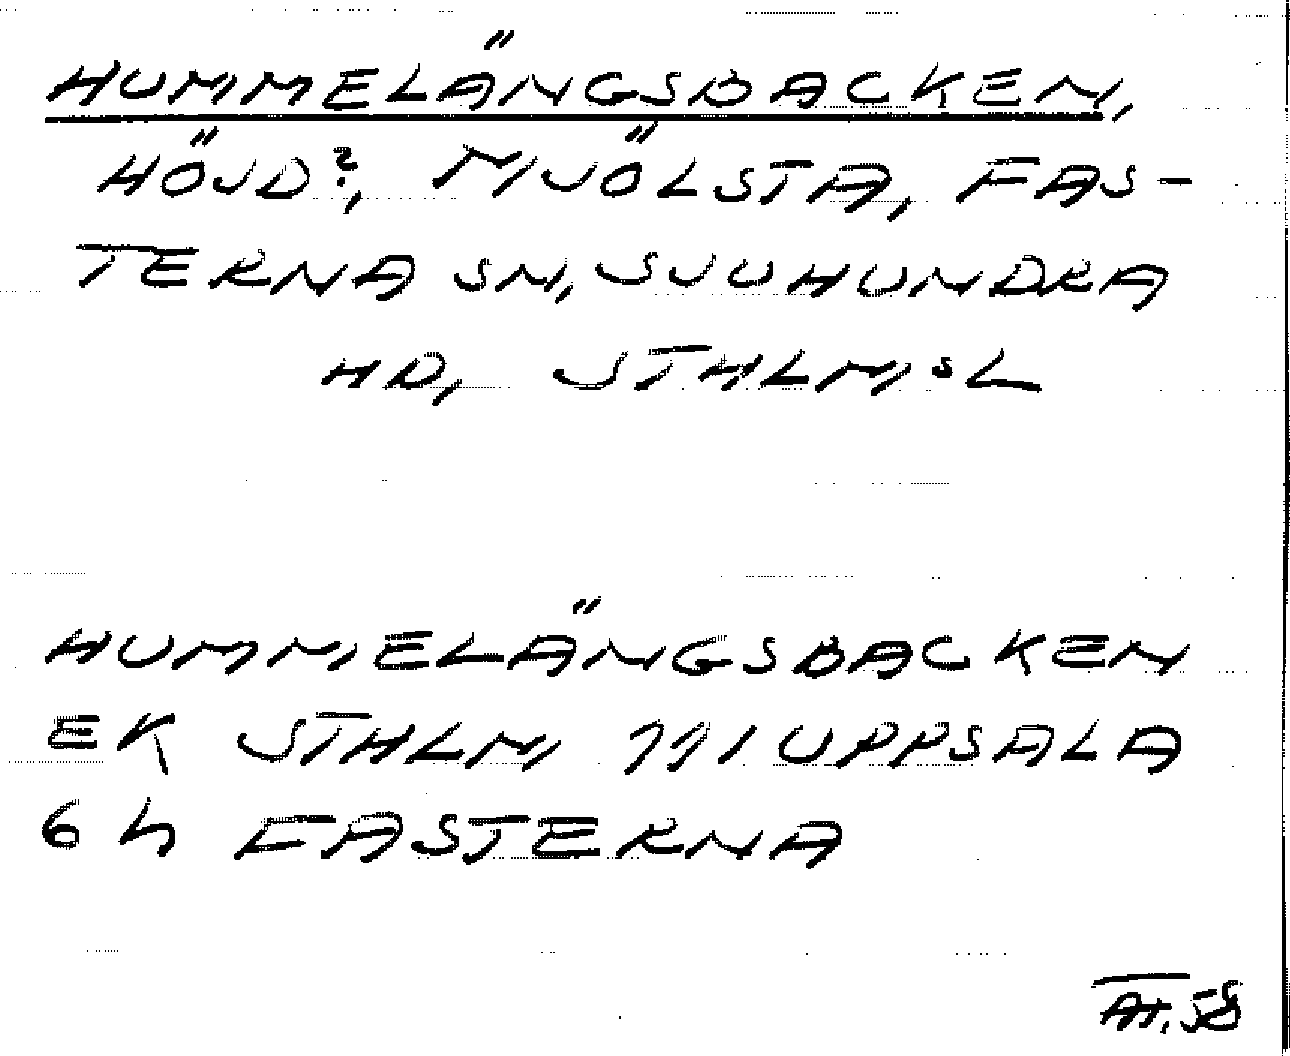 HUMMELÄNGSBACKEN,
HÖJD?, MJÖLSTA, FAS-
TERNA SN, SJUHUNDRA
HD, STHLMSL
HUMMELÄNGSBACKEN
EK STHLM 111 UPPSALA
6 h FASTERNA
AT. 58